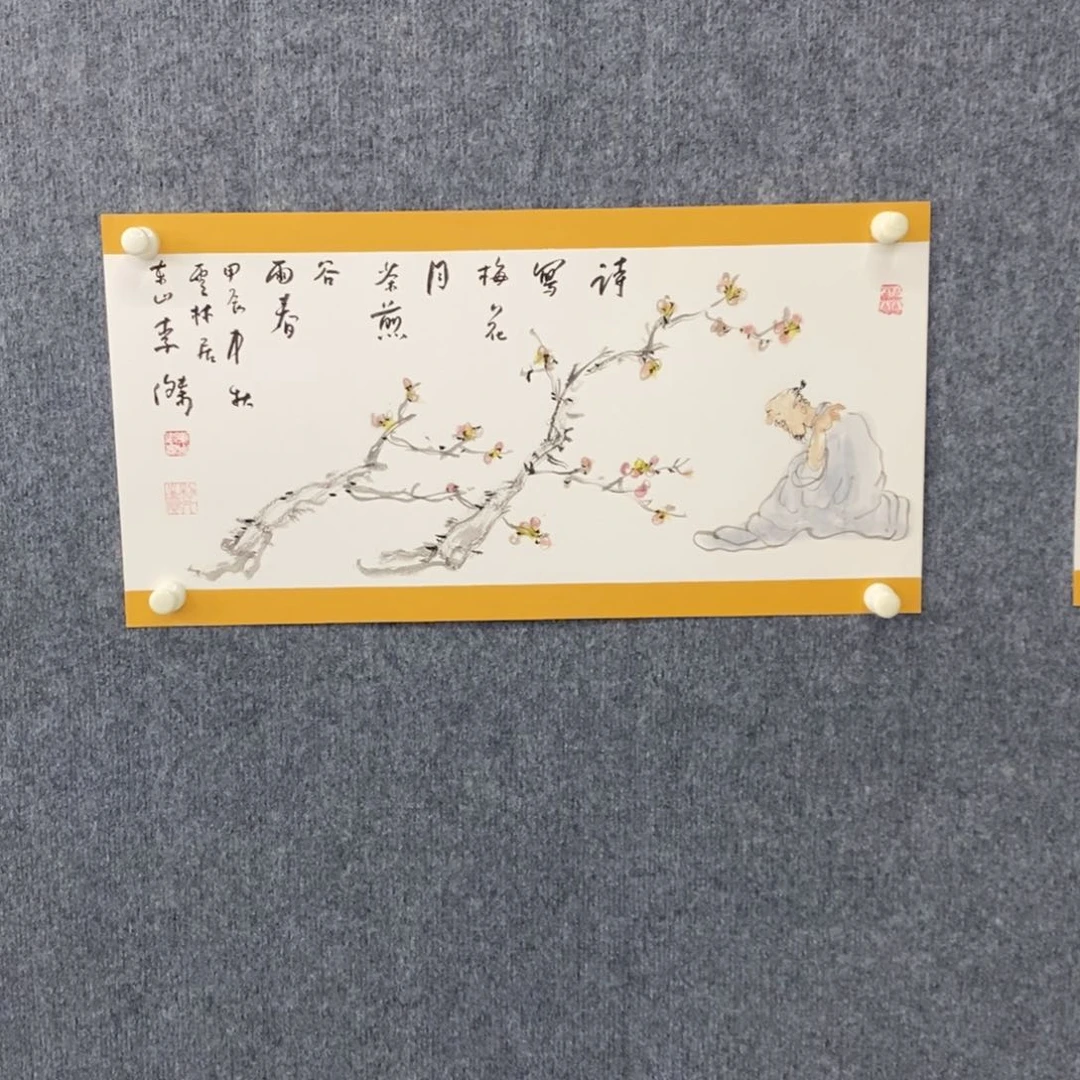 詩
寫
梅花
月
茶煎
谷
雨春
甲辰中秋
雲林居
東山李傑